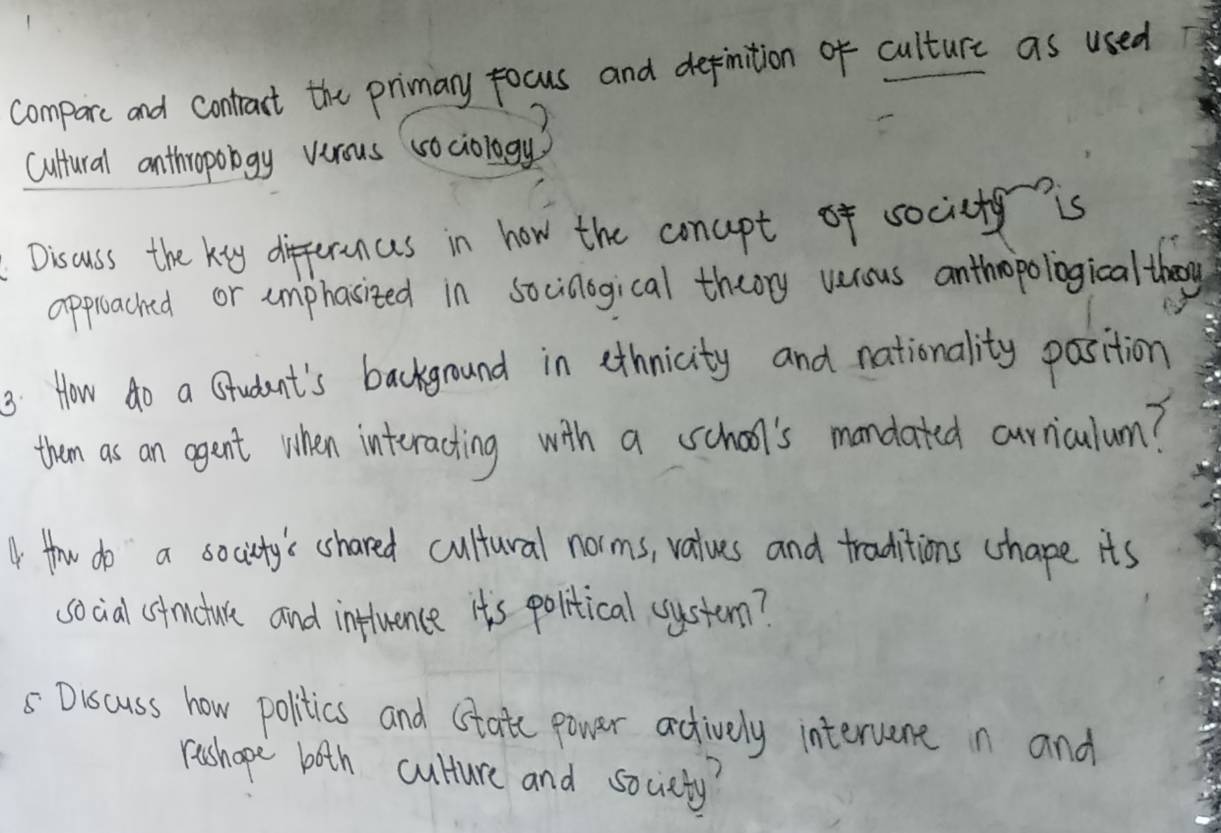 Compare and Contrast the primary focus and definition of culture as used
Cultural anthropology versus sociology?
Discuss the key differences in how the concept of society is
approached or emphasized in sociological theory versus anthropological theory
3. How do a Student's background in ethnicity and nationality position
them as an agent when interacting with a school's mandated curriculum?
4. How do a society's shared cultural norms, values and traditions shape its
social structure and influence it's political system?
5 Discuss how politics and State power actively intervene in and
reshape both culture and society?